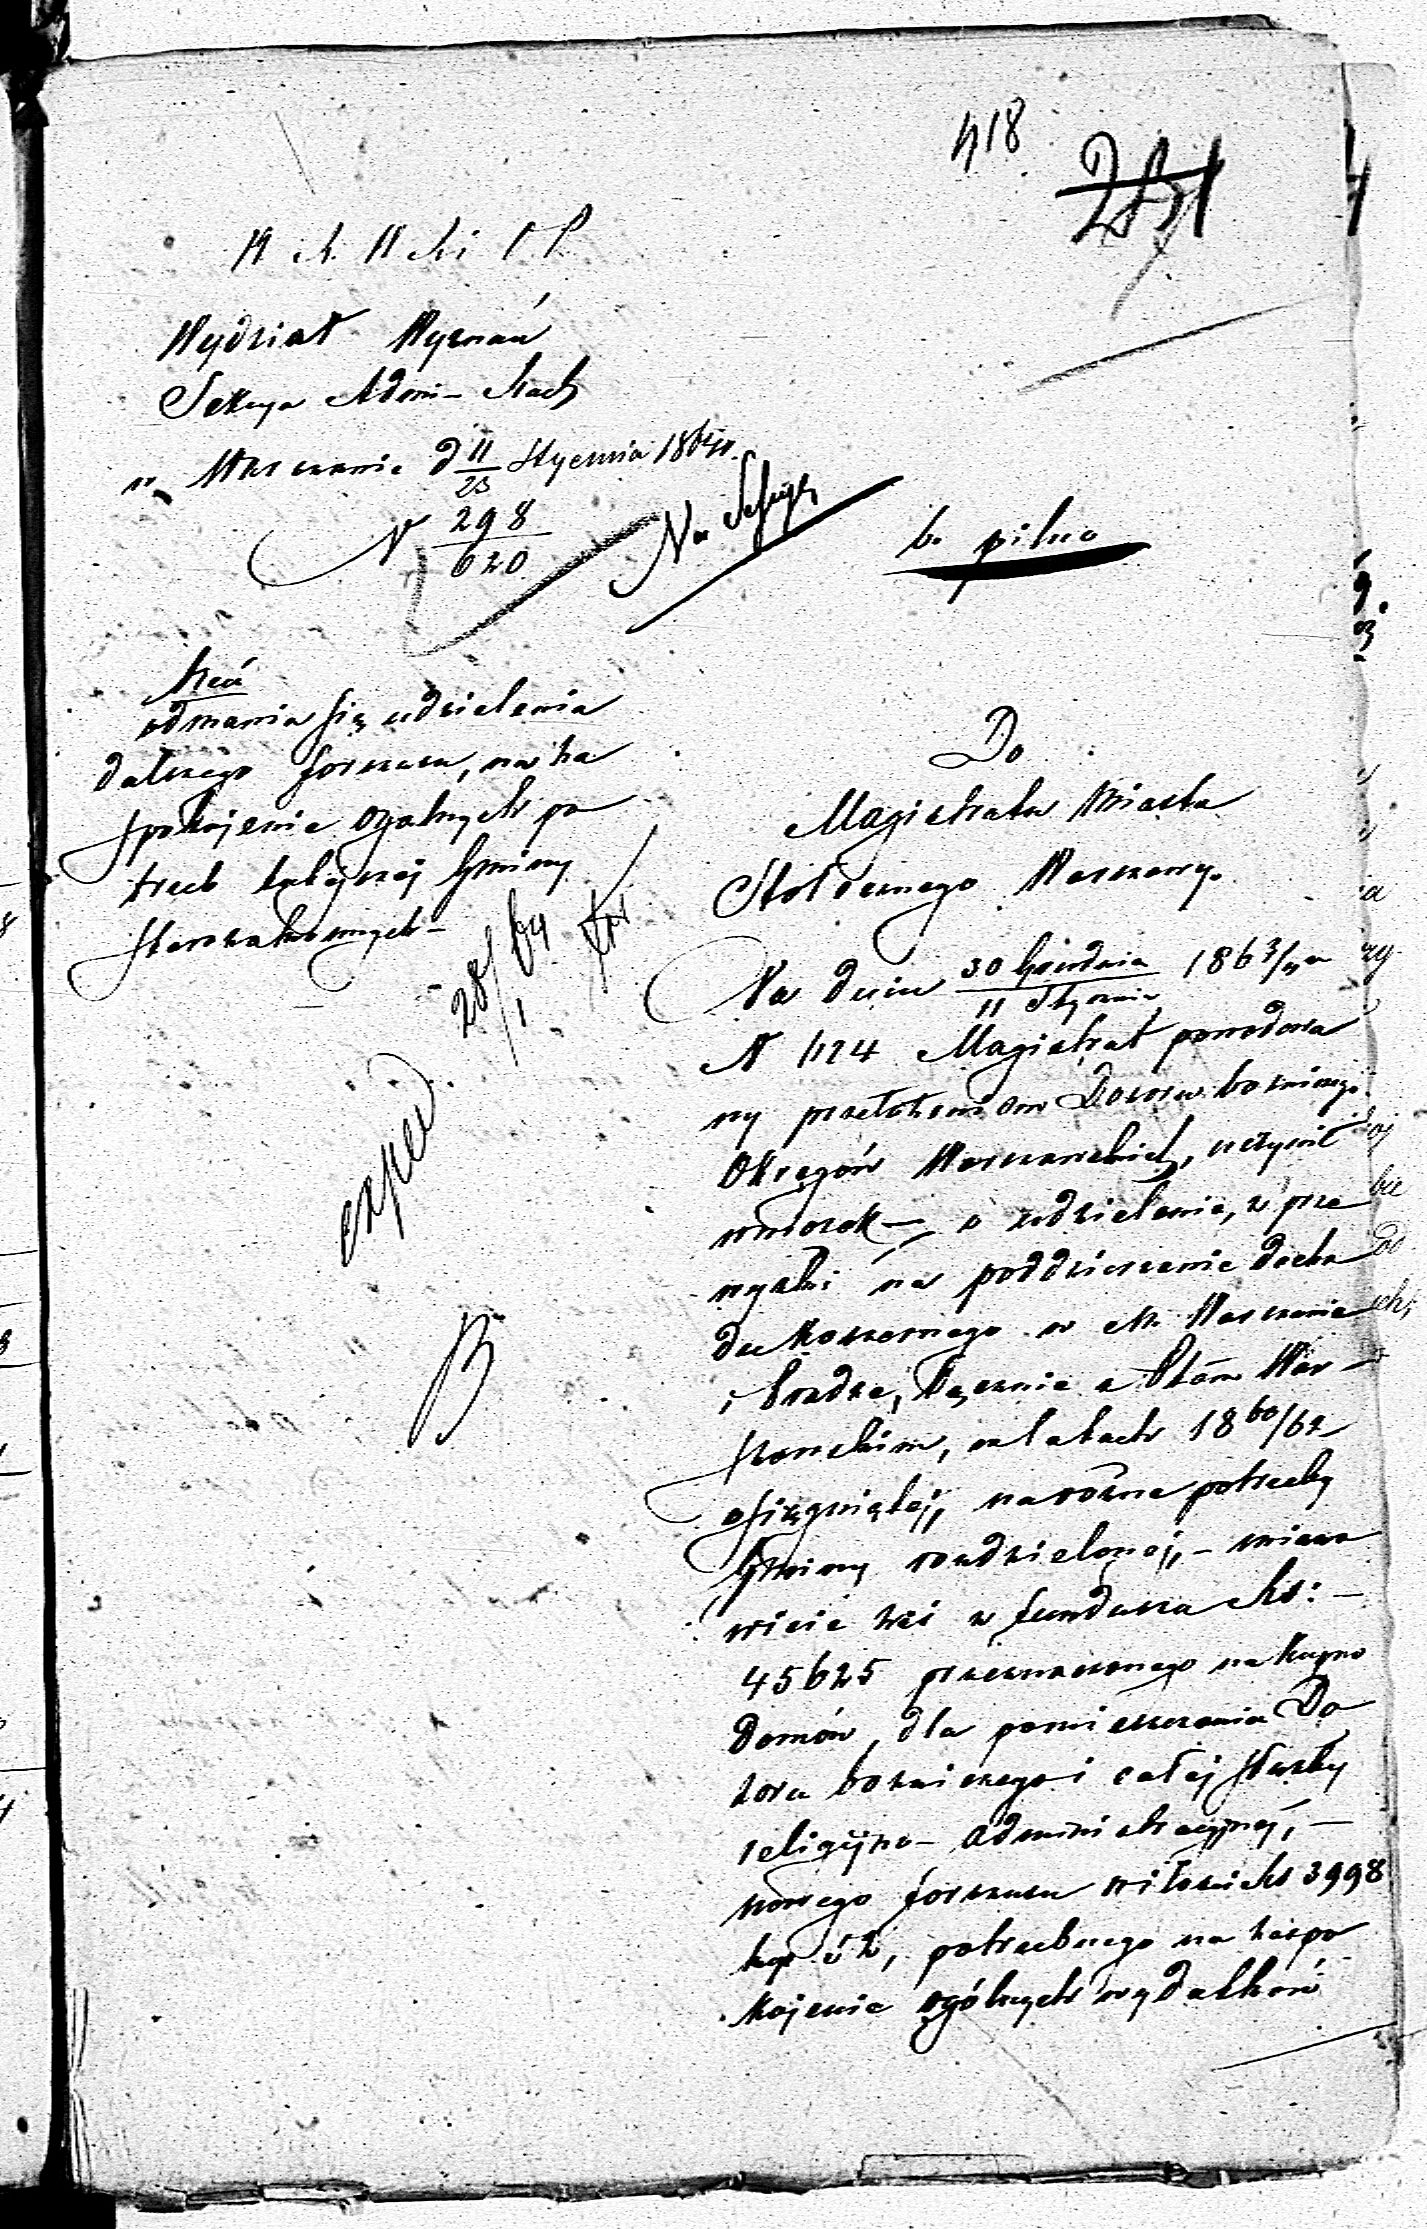 418
251
K. R. W. i O. P.
Wydział Wyznań
Sekcya Adm-
w Warszawie d 11/23 Stycznia 1864 r.
N 298/620
b. pilno
Treść
odmawia się udzielenia
dalszego forszusu, na za
spokojenie ogólnych po
trzeb tutejszej Gminy
Starozakonnych-
28/1 64
exped.
Do
Magistratu Miasta
Stołecznego Warszawy.
Na dniu 30 Grudnia/11 Stycznia 1863/4 r
N 1124 Magistrat powodowa
ny przełożeniem Dozoru bożniczego
Okręgów Warszawskich, uczynił
wniosek – o udzielenie, z prze
wyżki na poddzierżawie docho
du koszernego w M. Warszawie
i Pradze, łącznie z Ptem War-
szawskim, w latach 1860/62
osiągniętej, na różne potrzeby
Gminy rozdzielonej, – miano
wicie zaś z funduszu Rs: –
45625 przeznaczonego na kupno
Domów, dla pomieszczenia Do
zoru bożniczego i całej służby
religijno- administracyjnej, –
nowego forszusu w ilości Rs 3998
kop 52, potrzebnego na zaspo
kojenie ogólnych wydatków